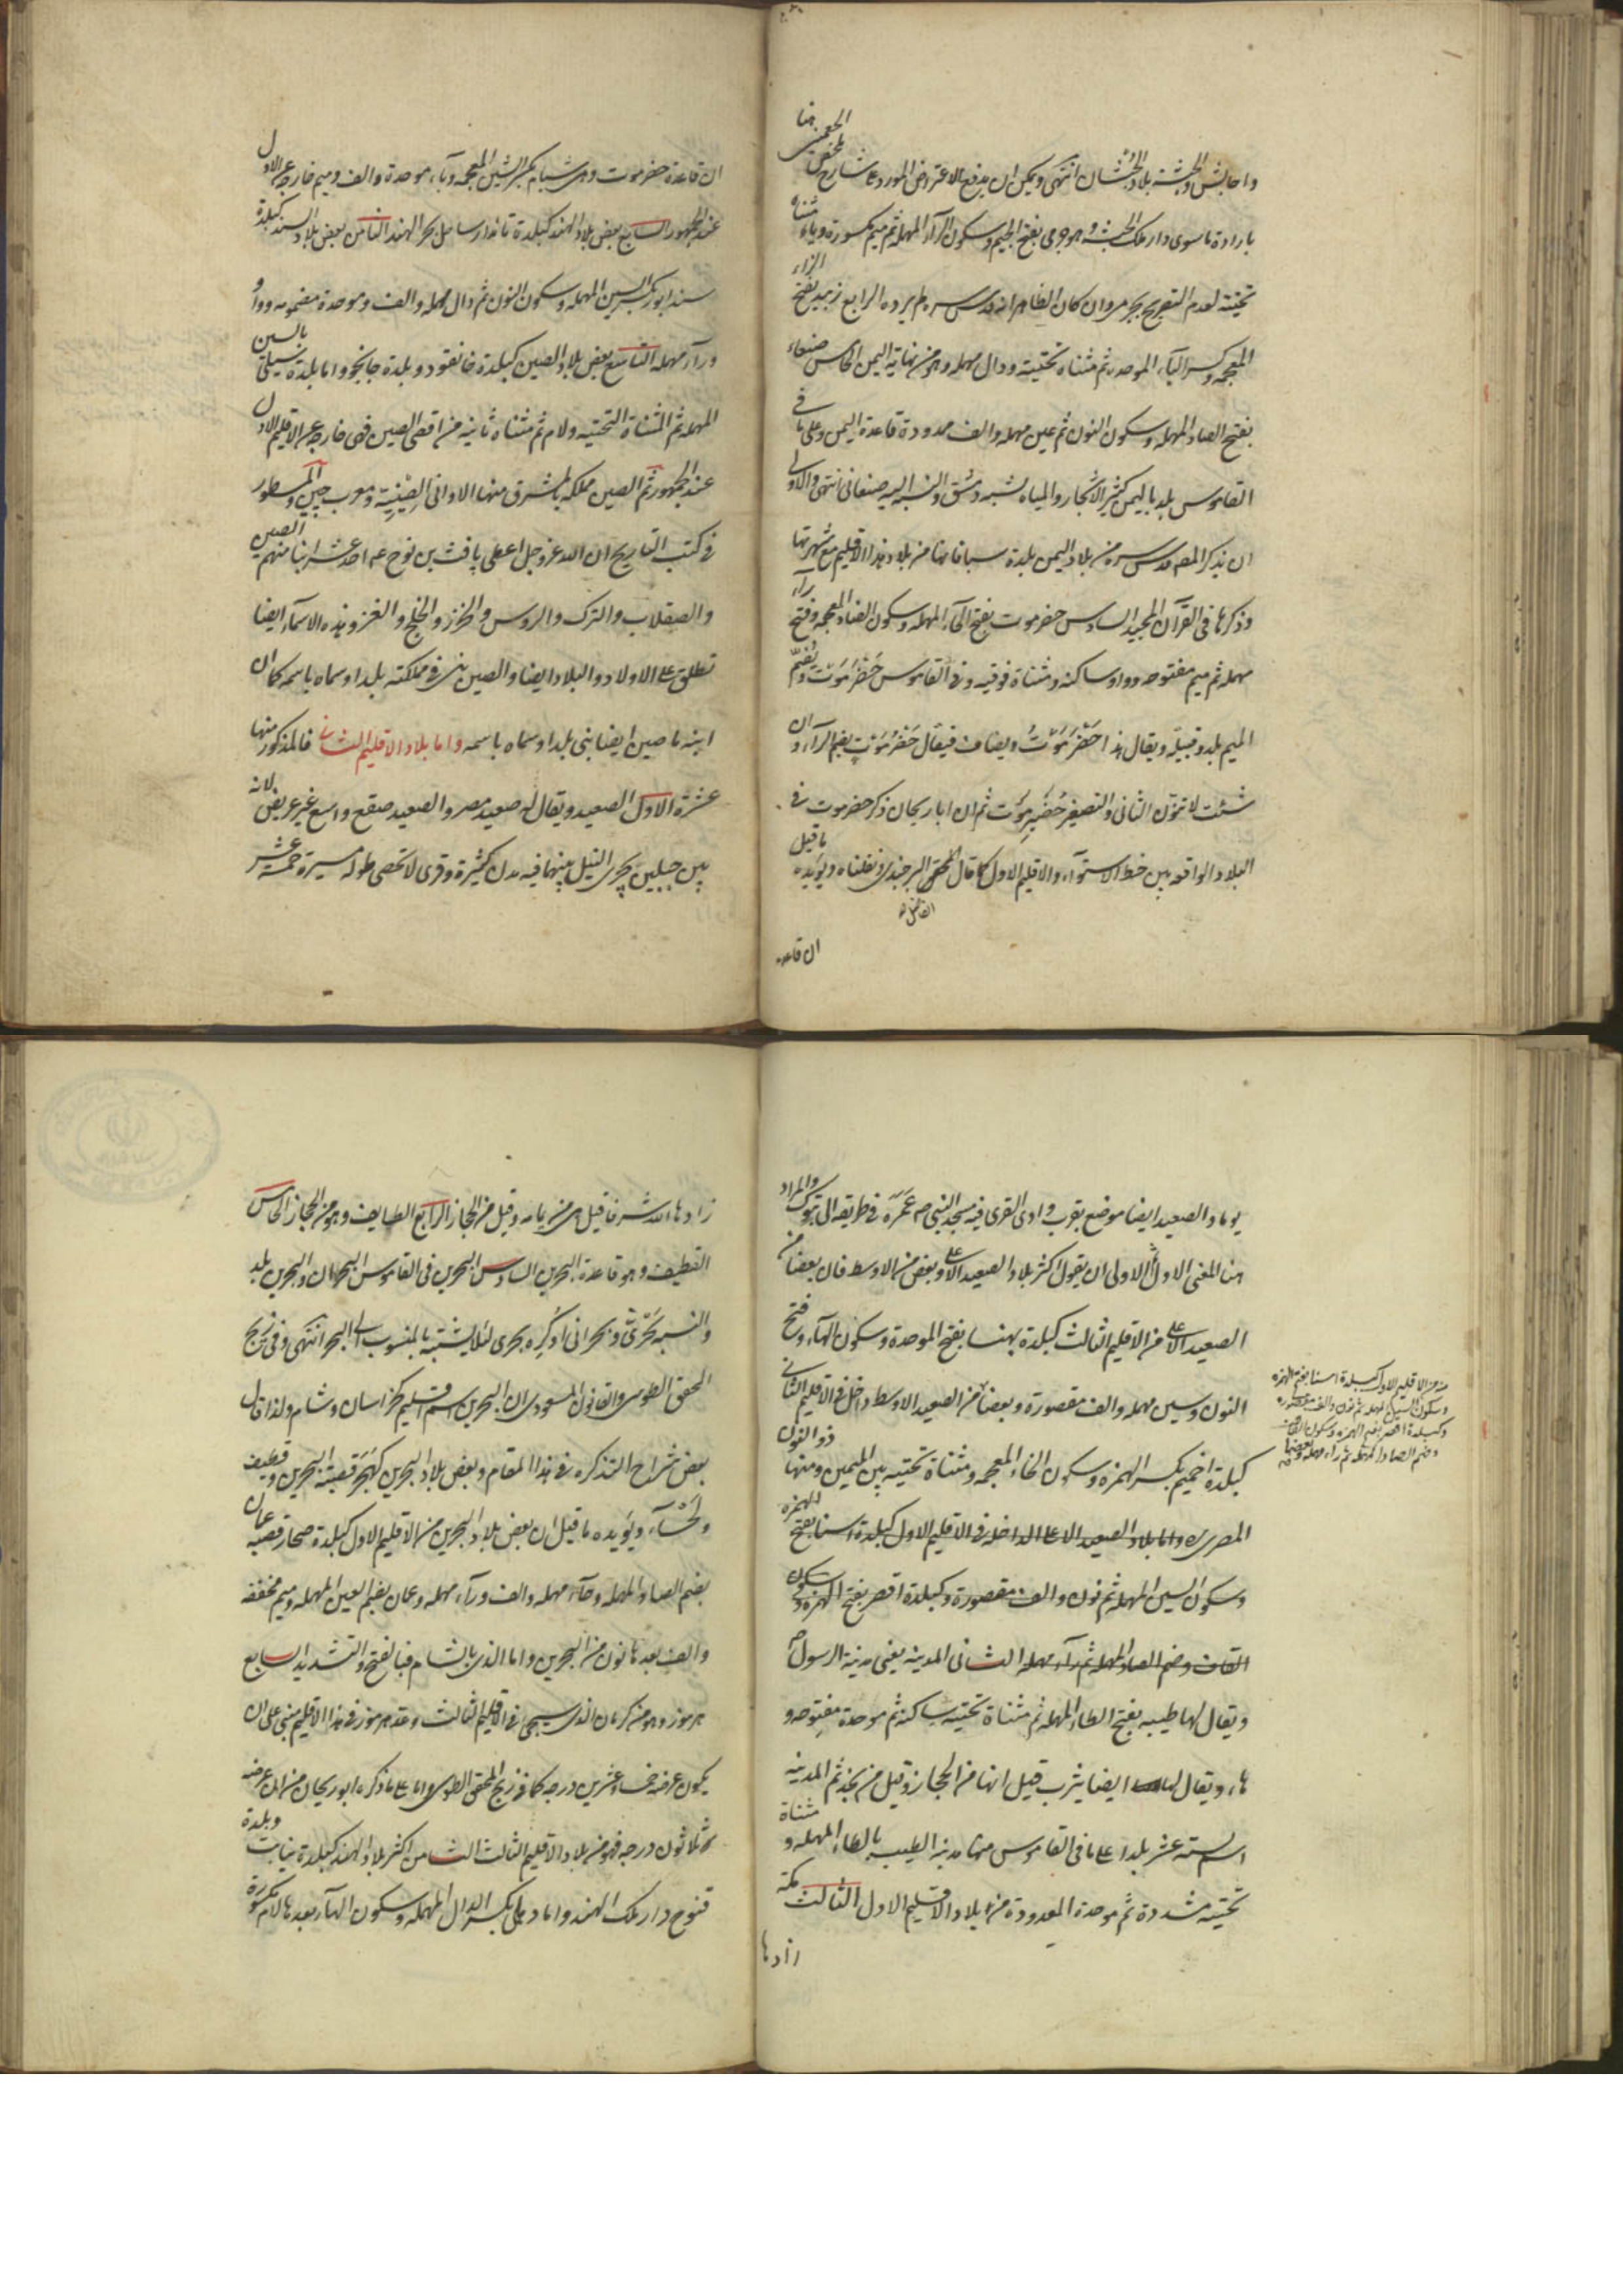 واحابش والحبشة بلاد الحبشان انتهى ويمكن ان يدفع الاعتراض المورد على شارح ملخص الجغمينى هنا
بارادة ما سوى دار ملك الحبشة وهو جرمى بفتح الجيم وسكون الرآء المهملة ثم ميم مكسورة وياء مثناة
تحتية لعدم التصريح بجرمى وان كان الظاهر انه قدس سره لم يرده الرابع زبيد بفتح الزاء
المعجمة وكسر الباء الموحدة ثم مثناه تحتية ودال مهملة وهو من تهامة اليمن الخامس صنعاء
بفتح الصاد المهملة وسكون النون ثم عين مهملة والف ممدودة قاعدة اليمن وعلى ما فى
القاموس بلد باليمن كثير الاشجار والمياه تشبه دمشق والنسبة اليه صنعانى انتهى والاولى
ان يذكر المصه قدس سره من بلاد اليمن بلدة سبا فانها من بلاد هذا الاقليم مع شهرتها
وذكرها فى القرآن المجيد السادس حضرموت بفتح الحآء المهملة وسكون الضاد المعجمة وفتح رآء
مهملة ثم ميم مفتوحة وواو ساكنة ومثناة فوقية وفى القاموس حَضْرَمَوْتُ وتُضَمّ
الميم بلد وقبيلة ويقال هذا حَضْرَمَوْتُ ويضاف فيقال حَضْرُمَوْتٍ بضم الرآء وان
شئت لا تنوّن الثانى والتصغير حُضَيْرمَوْت ثم ان ابا ريحان ذكر حضرموت فى
البلاد الواقعة بين خط الاستوآء والاقليم الاول كما قال المحقق البرجندى ونقلناه ويؤيده ما قيل
الفاضل
ان قاعدة
ان قاعدة حضرموت وهى شبام بكسر الشين المعجمة وبآء موحدة والف وميم خارجة عن الاول
عند الجمهور السابع بعض بلاد الهند كبلدة تانه دار ساحل بحر الهند الثامن بعض بلاد السند كبلدة
سندابور بكسر السين المهملة وسكون النون ثم دال مهملة والف وموحدة مضمومة وواو
ورآء مهملة التاسع بعض بلاد الصين كبلدة خانقود وبلدة جانجو واما بلدة سيلى بالسين
المهملة ثم المثناة التحتية ولام ثم مثناه ثانية من اقصى الصين فهى خارجة عن الاقليم الاول
عند الجمهور ثم الصين مملكة بالمشرق منها الاوانى الصِّينِيّة ومعرب چين والمسطور
فى كتب التاريخ ان الله عز وجل اعطى يافث بن نوح عه احد عشر ابنا منهم الصين
والصقلاب والترك والروس والخزر والخلج والغز وهذه الاسمآء ايضا
تطلق على الاولاد والبلاد ايضا والصين بنى فى مملكته بلدا وسماه باسمه كما ان
ابنه ماصين ايضا بنى بلدا وسماه باسمه واما بلاد الاقليم الثانى فالمذكور منها
عشرة الاول الصعيد ويقال له صعيد مصر والصعيد صقع واسع غير عريض لانه
بين جبلين يجرى النيل بينهما فيه مدن كثيرة وقرى لا تحصى طوله مسيرة خمسة عشر
يوما والصعيد ايضا موضع بقرب وادى القرى فيه مسجد النبى صم عَمَرَه فى طريقه الى تبوك والمراد
هنا المعنى الاول ثم الاولى ان يقول اكثر بلاد الصعيد الاعلى وبعض من الاوسط فان بعضا من
الصعيد الاعلى من الاقليم الثالث كبلدة بهنسا بفتح الموحدة وسكون الهآء وفتح
النون وسين مهملة والف مقصورة وبعضا من الصعيد الاوسط داخل فى الاقليم الثانى
كبلدة اخميم بكسر الهمزة وسكون الخاء المعجمة ومثناة تحتية بين الميمين ومنها ذو النون
المصرى واما بلاد الصعيد الاعلى الداخلة فى الاقليم الاول كبلدة اسنا بفتح الهمزة
وسكون السين المهملة ثم نون والف مقصورة وكبلدة اقصر بفتح الهمزة وسكون
القاف وضم الصاد المهملة ثم رآء مهملة الثانى المدينة يعنى مدينة الرسول ص
ويقال لها طيبة بفتح الطاء المهملة ثم مثناة تحتية ساكنة ثم موحدة مفتوحة و
هاء ويقال لها ايضا يثرب قيل انها من الحجاز وقيل من نجد ثم المدينة
اسم لستة عشر بلدا على ما فى القاموس منها مدينة الطيبة بالطاء المهملة و مثناة
تحتية مشددة ثم موحدة المعدودة من بلاد الاقليم الاول الثالث مكة
زادها
من الاقليم الاول كبلدة اسنا بفتح الهمزة
وسكون السين المهملة ثم نون والف مقصورة
وكبلدة اقصر بضم الهمزة وسكون القاف
وضم الصاد المهملة ثم راء مهملة وبعضها
زادها الله شرفا قيل هى من تهامة وقيل من الحجاز الرابع الطايف وهو من الحجاز الخامس
القطيف وهو قاعدة البحرين السادس البحرين فى القاموس البحران والبحرين بلد
والنسبة بَحْرِىّ وبحرانى او كره بحرى لئلا يشتبه بالمنسوب الى البحر انتهى وفى زيج
المحقق الطوسى والقانون المسعودى ان البحرين اسم اقليم كخراسان وشام ولذا قال
بعض شراح التذكرة فى هذا المقام وبعض بلاد البحرين كهَجَر قصبة البحرين وقطيف
ولَحْسَآء ويؤيده ما قيل ان بعض بلاد البحرين من الاقليم الاول كبلدة صحار قصبة عمان
بضم الصاد المهملة وحآء مهملة والف ورآء مهملة وعمان بضم العين المهملة وميم مخففة
والف بعدها نون من البحرين واما الذى بالشام فبالفتح والتشديد السابع
هرموز وهو من كرمان الذى سيجئ فى الاقليم الثالث وعد هرموز فى هذا الاقليم مبنى على ان
يكون عرضه خمسا وعشرين درجة كما فى زيج المحقق الطوسى واما على ما ذكره ابو ريحان من ان عرضه
ثلاثون درجة فهو من بلاد الاقليم الثالث الثامن اكثر بلاد الهند كبلدة وبلدة
قنوج دار ملك الهند واما دهلى بكسر الدال المهملة وسكون الهآء بعدها لام مكسورة